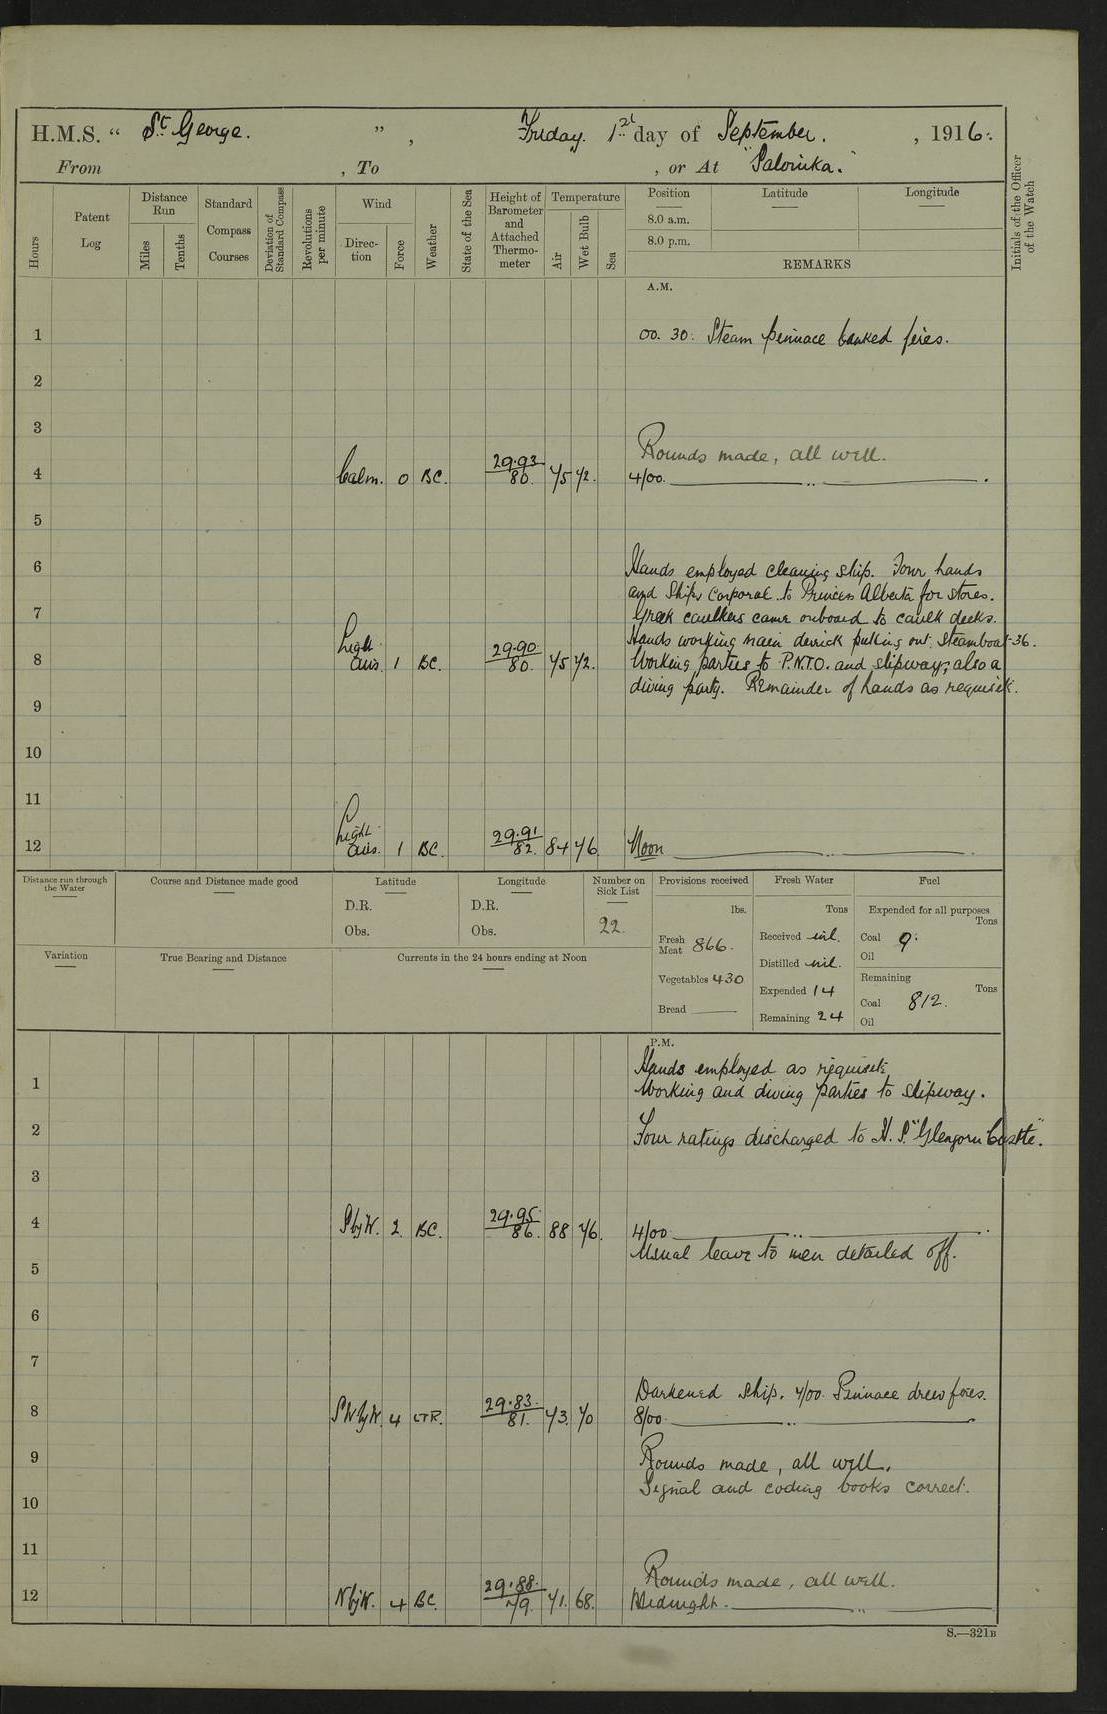 H.M.S. " St George. ", Friday. 1st day of September. , 1916.
From , To , or At "Salonika."
Hours
Patent Log
Distance Run
Miles
Tenths
Standard Compass Courses
Deviation of Standard Compass
Revolutions per minute
Wind
Direction
Force
Weather
State of the Sea
Height of Barometer and Attached Thermometer
Temperature
Air
Wet Bulb
Sea
Position Latitude Longitude
8.0 a.m.
8.0 p.m.
REMARKS
Initials of the Officer of the Watch
A.M.
1 00.30. Steam pinnace banked fires.
2
3
Rounds made, all well.
4 Calm. 0 BC. 29.93 80. 75 72. 4/00. ..
5
6 Hands employed cleaning ship. Four hands
and Ships Corporal to Princess Alberta for stores.
7 Greek caulkers came onboard to caulk decks.
Hands working main derrick pulling out Steamboat 36.
8 Light airs. 1 BC. 29.90 80. 75 72. Working parties to P.N.T.O. and slipway; also a
diving party. Remainder of hands as requisite.
9
10
11
12 Light airs. 1 BC. 29.91 82. 84 76 Noon ..
Distance run through the Water
Course and Distance made good
Latitude
D.R.
Obs.
Longitude
D.R.
Obs.
Number on Sick List
22.
Provisions received
lbs.
Fresh Meat 866.
Vegetables 430
Bread
Fresh Water
Tons
Received nil.
Distilled nil.
Expended 14
Remaining 24
Fuel
Expended for all purposes
Tons
Coal 9.
Oil
Remaining
Tons
Coal 812.
Oil
Variation
True Bearing and Distance
Currents in the 24 hours ending at Noon
P.M.
Hands employed as requisite.
1 Working and diving parties to slipway.
2 Four ratings discharged to H.S. "Glengorm Castle".
3
4 S by W. 2. BC. 29.95 86. 88 76. 4/00 ..
Usual leave to men detailed off.
5
6
7
Darkened ship. 7/00. Pinnace drew fires.
8 SW by W. 4 LTR. 29.83. 81. 73. 70 8/00. ..
9 Rounds made, all well.
Signal and coding books correct.
10
11
Rounds made, all well.
12 N by W. 4 BC. 29.88. 79. 71. 68. Midnight. ..
S.—321B